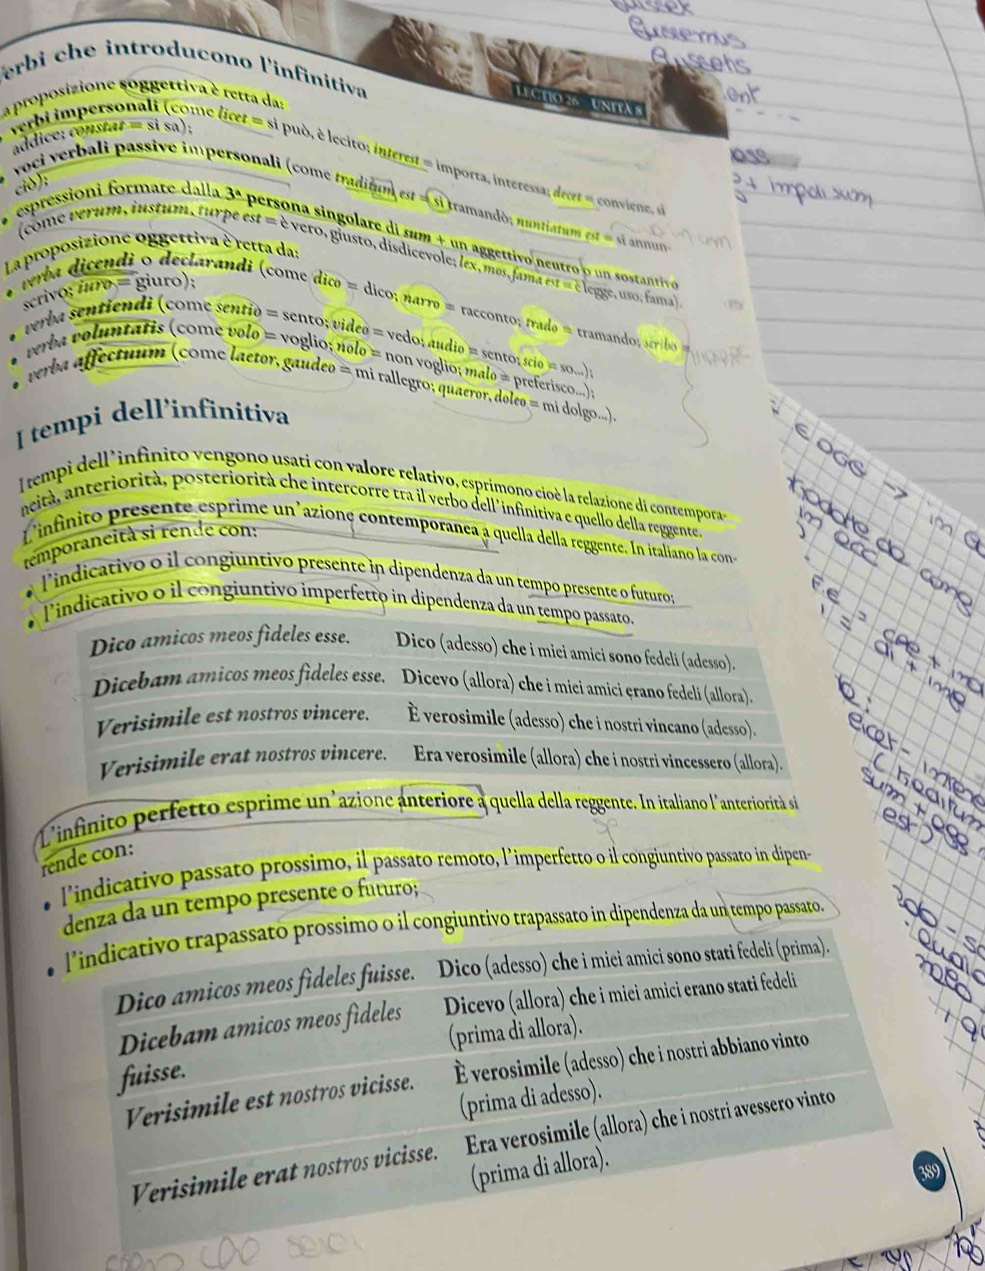 Verbi che introducono l'infinitiva
LECTIO 26 UNITÀ 8
La proposizione soggettiva è retta da:
verbi impersonali (come licet = si può, è lecito; interest = importa, interessa; decet = conviene, si
addice; constat = si sa);
• voci verbali passive impersonali (come traditum est = si tramandò; nuntiatum est = si annun-
ciò);
• espressioni formate dalla 3ª persona singolare di sum + un aggettivo neutro o un sostantivo
(come verum, iustum, turpe est = è vero, giusto, disdicevole; lex, mos, fama est = è legge, uso, fama).
La proposizione oggettiva è retta da:
• verba dicendi o declarandi (come dico = dico; narro = racconto; trado = tramando; scribo =
scrivo; iuro = giuro);
• verba sentiendi (come sentio = sento; video = vedo; audio = sento; scio = so...);
• verba voluntatis (come volo = voglio; nolo = non voglio; malo = preferisco...);
• verba affectuum (come laetor, gaudeo = mi rallegro; quaeror, doleo = mi dolgo...).
I tempi dell'infinitiva
I tempi dell'infinito vengono usati con valore relativo, esprimono cioè la relazione di contempora-
neità, anteriorità, posteriorità che intercorre tra il verbo dell'infinitiva e quello della reggente.
L'infinito presente esprime un'azione contemporanea a quella della reggente. In italiano la con-
temporaneità si rende con:
• l'indicativo o il congiuntivo presente in dipendenza da un tempo presente o futuro;
• l'indicativo o il congiuntivo imperfetto in dipendenza da un tempo passato.
Dico amicos meos fideles esse. Dico (adesso) che i miei amici sono fedeli (adesso).
Dicebam amicos meos fideles esse. Dicevo (allora) che i miei amici erano fedeli (allora).
Verisimile est nostros vincere. È verosimile (adesso) che i nostri vincano (adesso).
Verisimile erat nostros vincere. Era verosimile (allora) che i nostri vincessero (allora).
L'infinito perfetto esprime un'azione anteriore a quella della reggente. In italiano l'anteriorità si
rende con:
• l'indicativo passato prossimo, il passato remoto, l'imperfetto o il congiuntivo passato in dipen-
denza da un tempo presente o futuro;
• l'indicativo trapassato prossimo o il congiuntivo trapassato in dipendenza da un tempo passato.
Dico amicos meos fideles fuisse. Dico (adesso) che i miei amici sono stati fedeli (prima).
Dicebam amicos meos fideles Dicevo (allora) che i miei amici erano stati fedeli
fuisse. (prima di allora).
Verisimile est nostros vicisse. È verosimile (adesso) che i nostri abbiano vinto
(prima di adesso).
Verisimile erat nostros vicisse. Era verosimile (allora) che i nostri avessero vinto
(prima di allora).
389